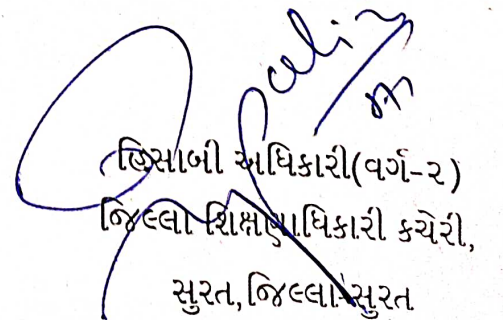 હિસાબી અધિકારી(વર્ગ-૨)
જિલ્લા શિક્ષણાધિકારી કચેરી,
સુરત,જિલ્લા:સુરત